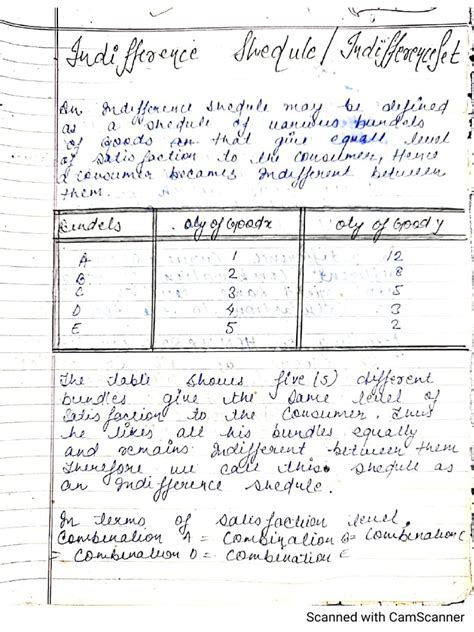 Indifference Shedule / Indifference Set
An Indifference shedule may be defined
as a shedule of various bundels
of Goods that give equall level
of satisfaction to the consumer, Hence
a consumer becomes Indifferent between
them.
Bundels Qty of Good x Qty of Good y
A 1 12
B 2 8
C 3 5
D 4 3
E 5 2
The table shows five (5) different
bundles give the same level of
satisfaction to the consumer. Thus
he likes all his bundles equally
and remains Indifferent between them
Therefore we call this shedule as
an Indifference shedule.
In terms of satisfaction level
Combination A = Combination B = Combination C
= Combination D = Combination E
Scanned with CamScanner